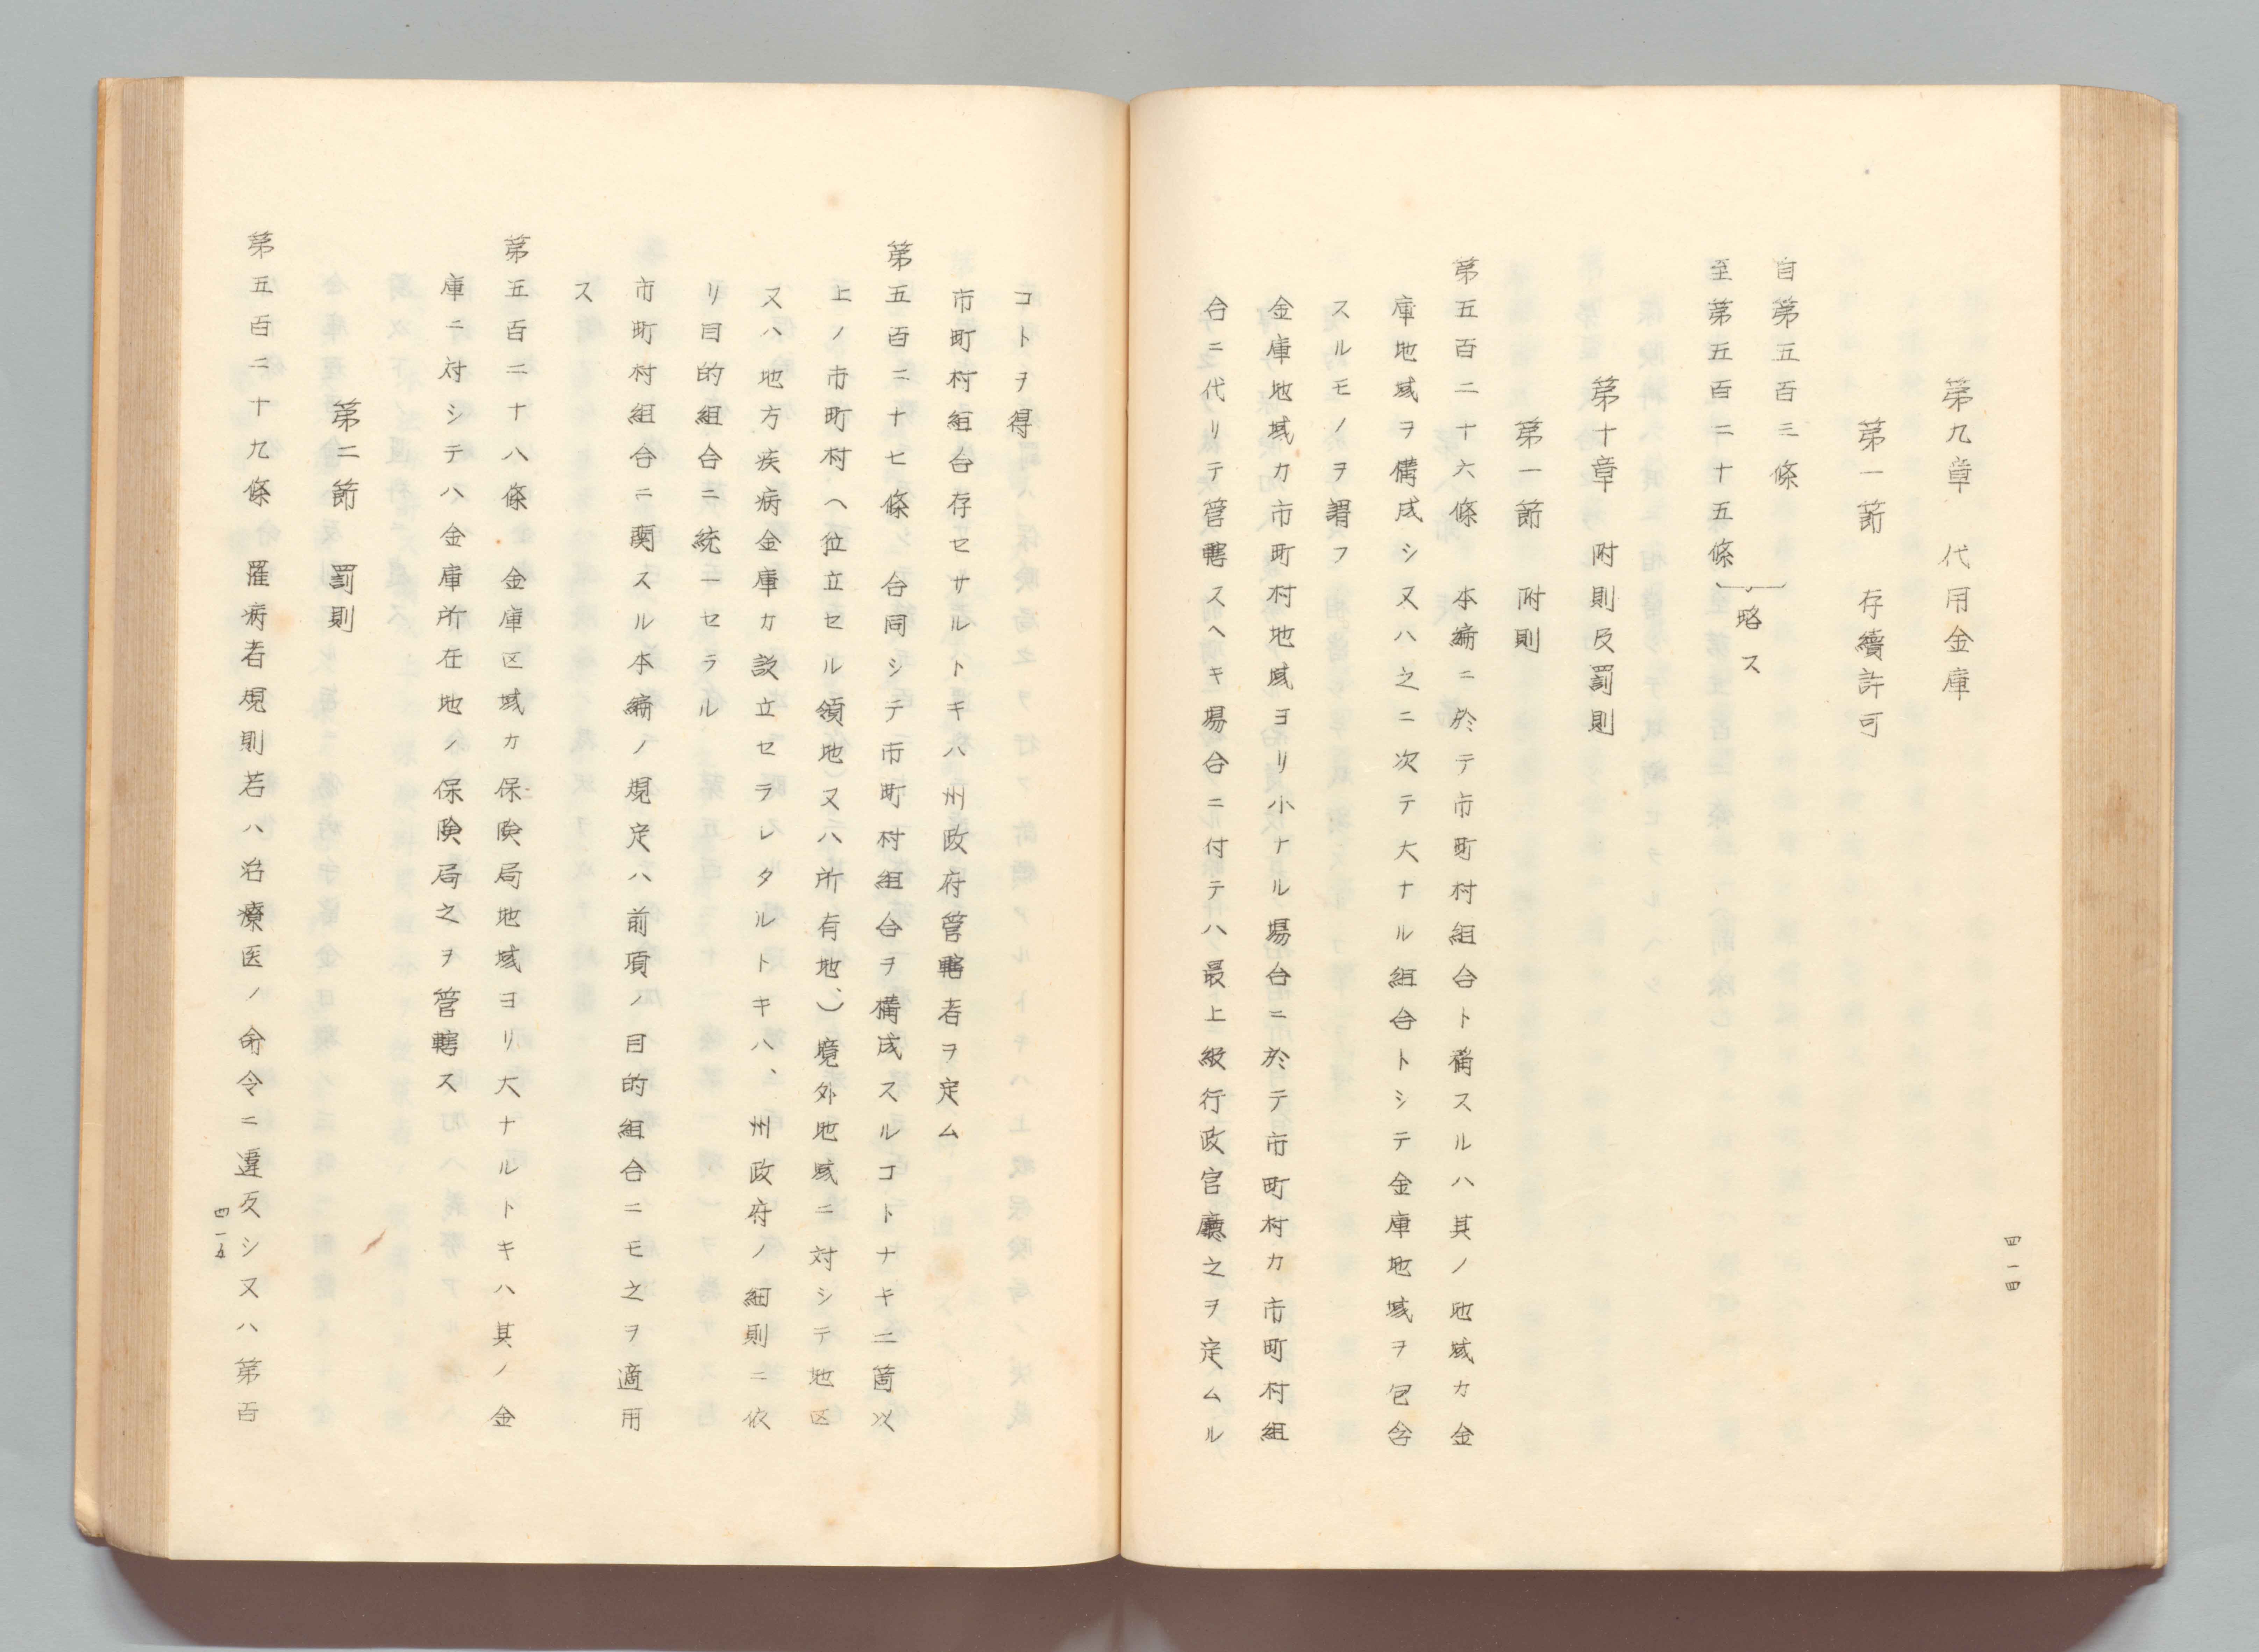 第九章　代用金庫
第一節　存續許可
自第五百三條
至第五百二十五條
略ス
第十章　附則及罰則
第一節　附則
第五百二十六條　本編ニ於テ市町村組合ト稱スルハ其ノ地域カ金
庫地域ヲ構成シ又ハ之ニ次テ大ナル組合トシテ金庫地域ヲ包含
スルモノヲ謂フ
金庫地域カ市町村地域ヨリ小ナル場合ニ於テ市町村カ市町村組
合ニ代リテ管轄スヘキ場合ニ付テハ最上級行政官廳之ヲ定ムル
四一四
コトヲ得
市町村組合存セサルトキハ州政府管轄者ヲ定ム
第五百二十七條　合同シテ市町村組合ヲ構成スルコトナキ二箇以
上ノ市町村ヘ位立セル領地又ハ所有地、）境外地域ニ対シテ地区
又ハ地方疾病金庫カ設立セラレタルトキハ、州政府ノ細則ニ依
リ目的組合ニ統一セラル
市町村組合ニ関スル本編ノ規定ハ前項ノ目的組合ニモ之ヲ適用
ス
第五百二十八條　金庫区域カ保険局地域ヨリ大ナルトキハ其ノ金
庫ニ対シテハ金庫所在地ノ保険局之ヲ管轄ス
第二節　罰則
第五百二十九條　罹病者規則若ハ治療医ノ命令ニ違反シ又ハ第百
四一五